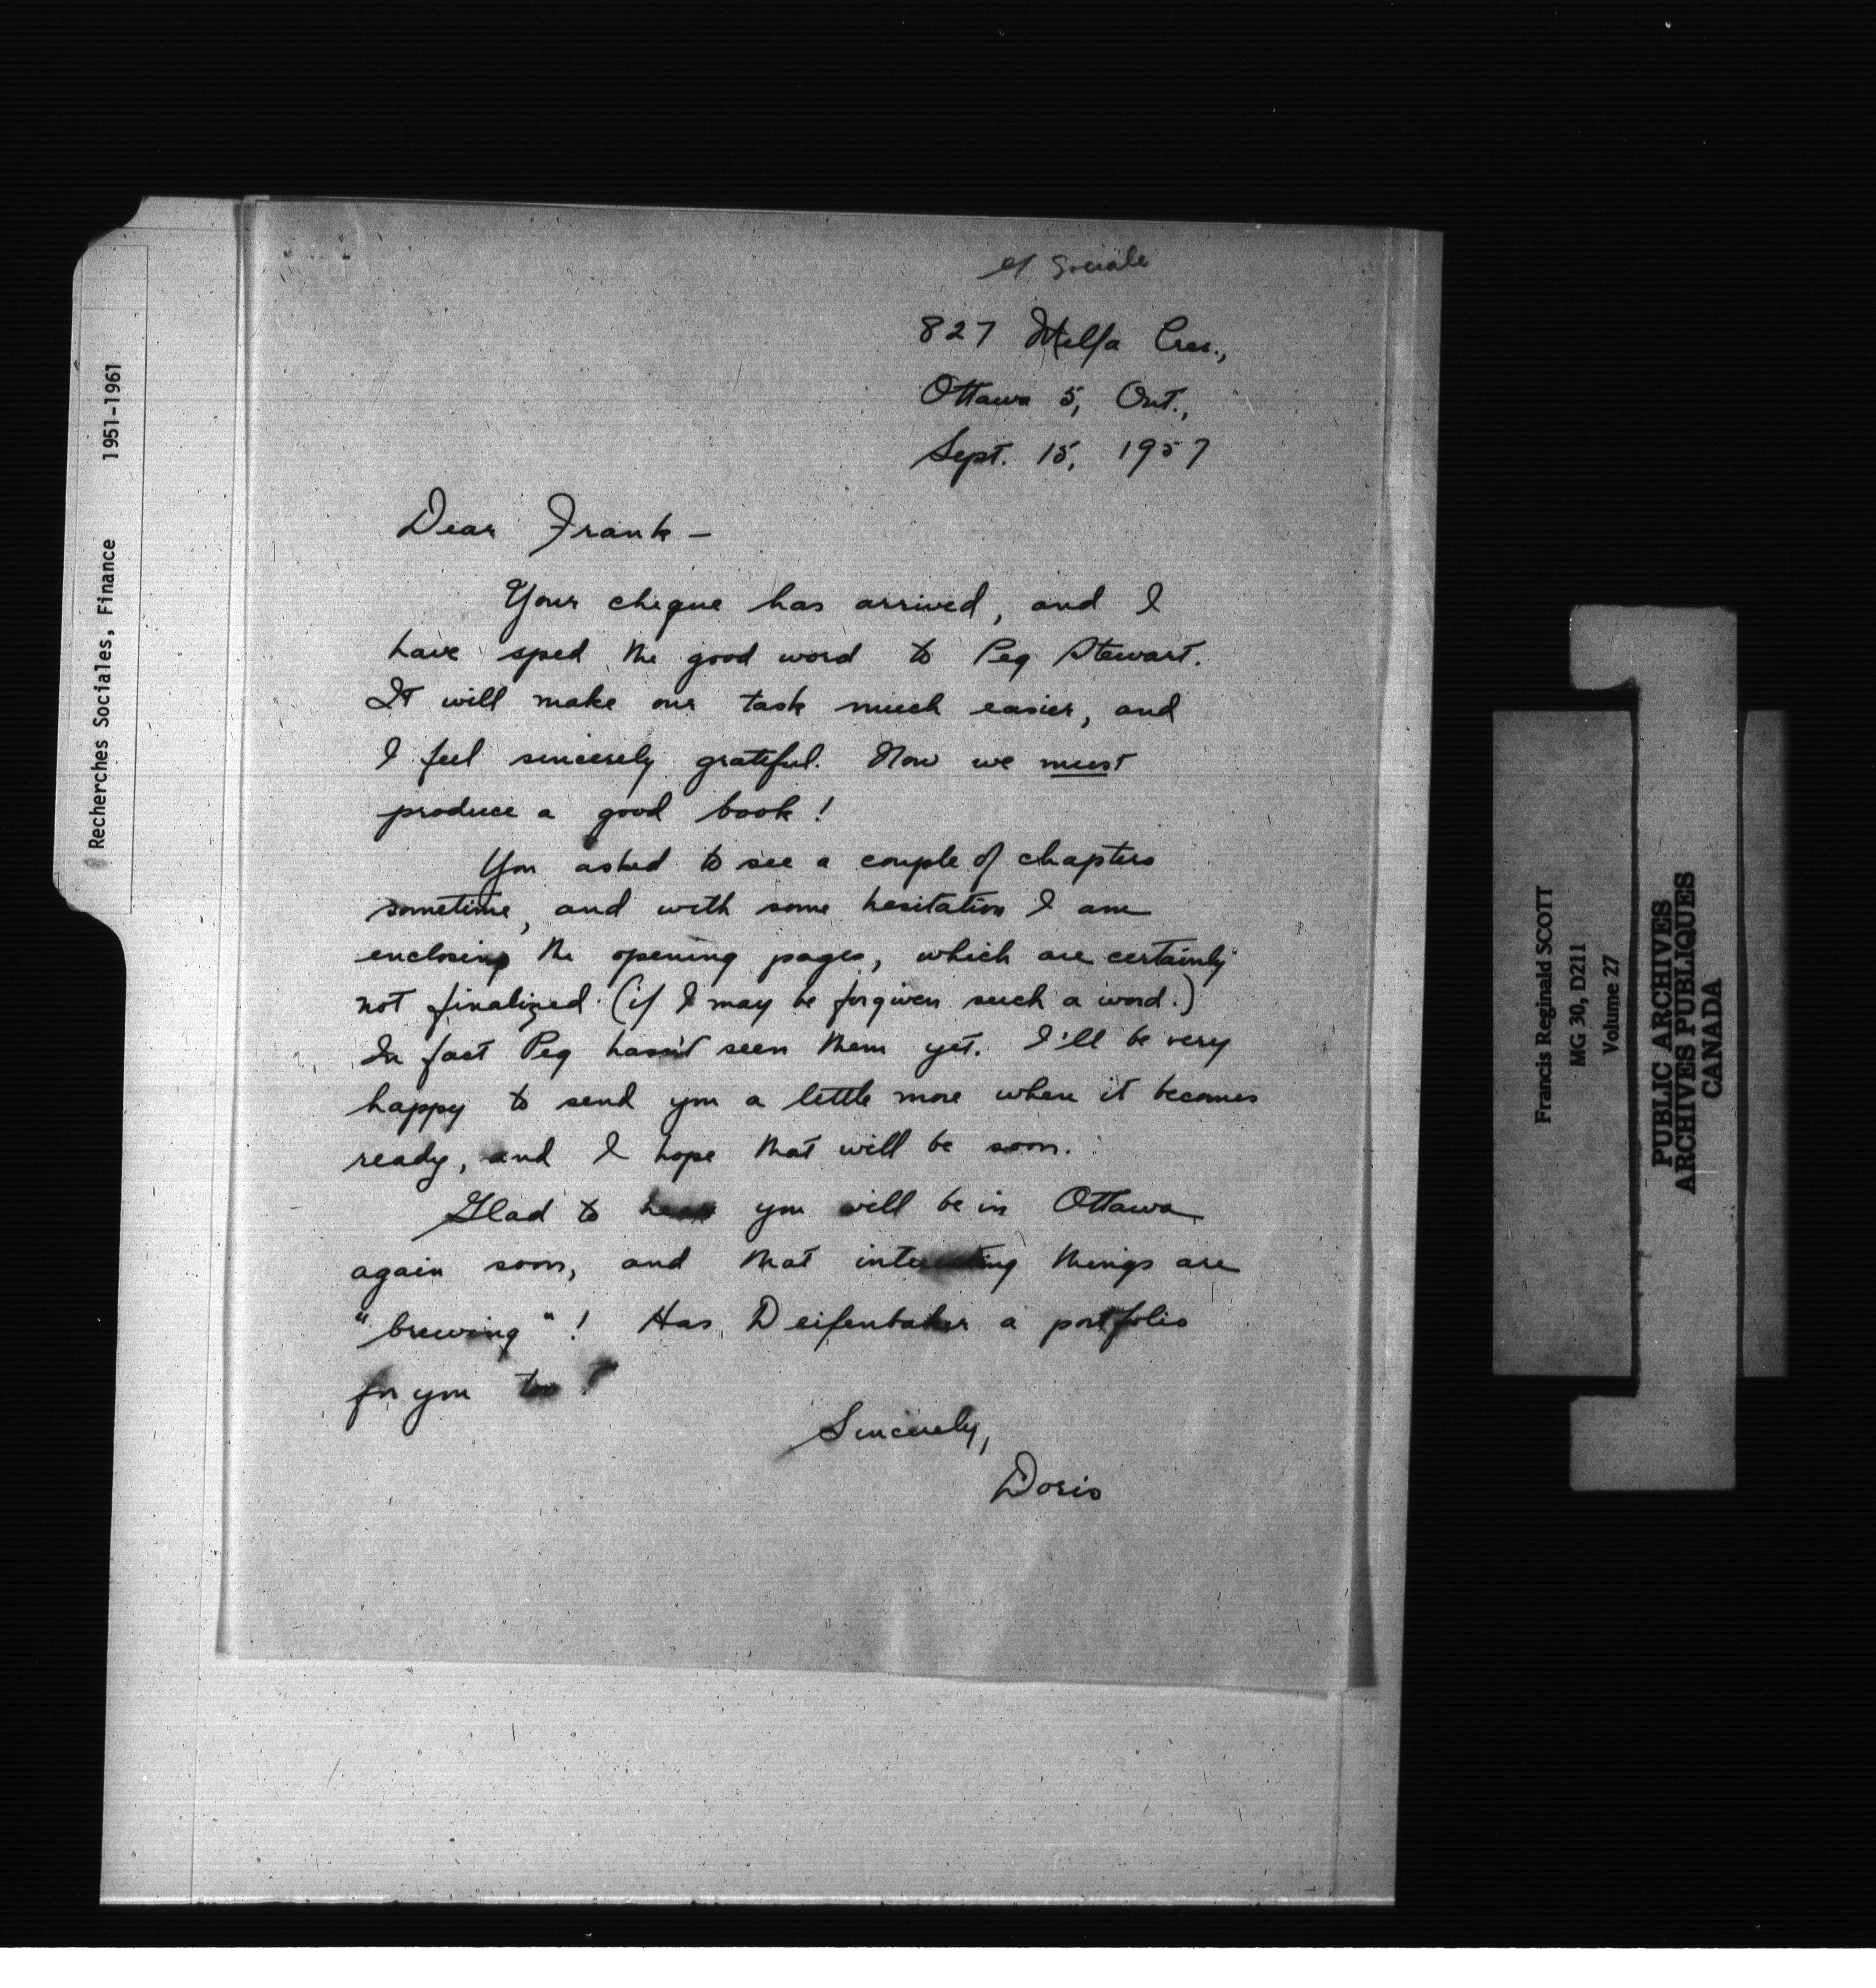 Recherches Sociales, Finance 1951-1961
Sociale
827 Melfa Cres.,
Ottawa 5, Ont.,
Sept. 15, 1957
Dear Frank —
Your cheque has arrived, and I
have sped the good word to Peg Stewart.
It will make our task much easier, and
I feel sincerely grateful. Now we must
produce a good book!
You asked to see a couple of chapters
sometime, and with some hesitation I am
enclosing the opening pages, which are certainly
not finalized (if I may be forgiven such a word.)
In fact Peg hasn't seen them yet. I'll be very
happy to send you a little more when it becomes
ready, and I hope that will be soon.
Glad to hear you will be in Ottawa
again soon, and that interesting things are
"brewing"! Has Deifenbaker a portfolio
for you too?
Sincerely,
Doris
Francis Reginald SCOTT
MG 30, D211
Volume 27
PUBLIC ARCHIVES
ARCHIVES PUBLIQUES
CANADA